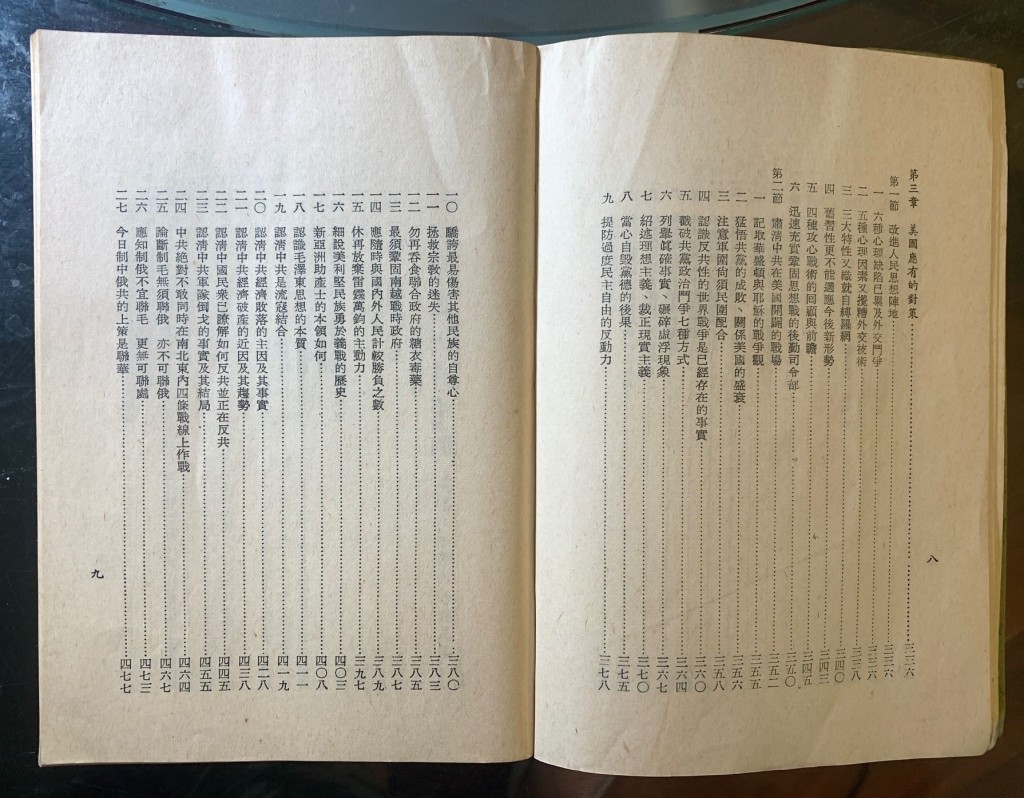 第三章 美國應有的對策……三三六
第一節 改進人民思想陣地……三三六
一 六種心理缺陷已暴及外交鬥爭……三三六
二 五種心理因素又攪糟外交技術……三三八
三 三大特性交織就自縛羅網……三四〇
四 舊習性更不能適應今後新形勢……三四三
五 四種攻心戰術的回顧與前瞻……三四五
六 迅速充實鞏固思想戰的後勤司令部……三五〇
第二節 肅清中共在美國開闢的戰場……三五二
一 記取華盛頓與耶穌的戰爭觀……三五五
二 猛悟共黨的成敗、關係美國的盛衰……三五六
三 注意軍團尚須民團配合……三五八
四 認識反共性的世界戰爭是已經存在的事實……三六〇
五 戳破共黨政治鬥爭七種方式……三六四
六 列舉眞確事實、碾碎虛浮現象……三六七
七 紹述理想主義、裁正現實主義……三七〇
八 當心自毀黨德的後果……三七五
九 提防過度民主自由的反動力……三七八
八
一〇 驕誇最易傷害其他民族的自尊心……三八〇
一一 拯救宗敎的迷失……三八三
一二 勿再吞食聯合政府的糖衣毒藥……三八五
一三 最須鞏固南越戰時政府……三八七
一四 應隨時與國內外人民計較勝負之數……三八九
一五 休再放棄雷霆萬鈞的主動力……三九七
一六 細說美利堅民族勇於義戰的歷史……四〇三
一七 新亞洲助產士的本領如何……四〇八
一八 認識毛澤東思想的本質……四一一
一九 認淸中共是流寇結合……四一九
二〇 認淸中共經濟敗落的主因及其事實……四二八
二一 認淸中共經濟破產的近因及其趨勢……四三八
二二 認淸中國民衆已瞭解如何反共並正在反共……四四五
二三 認淸中共軍隊倒戈的事實及其結局……四五五
二四 中共絕對不敢同時在南北東內四條戰線上作戰……四六四
二五 論斷制毛無須聯俄 亦不可聯俄……四六七
二六 應知制俄不宜聯毛 更無可聯處……四七三
二七 今日制中俄共的上策是聯華……四七七
九